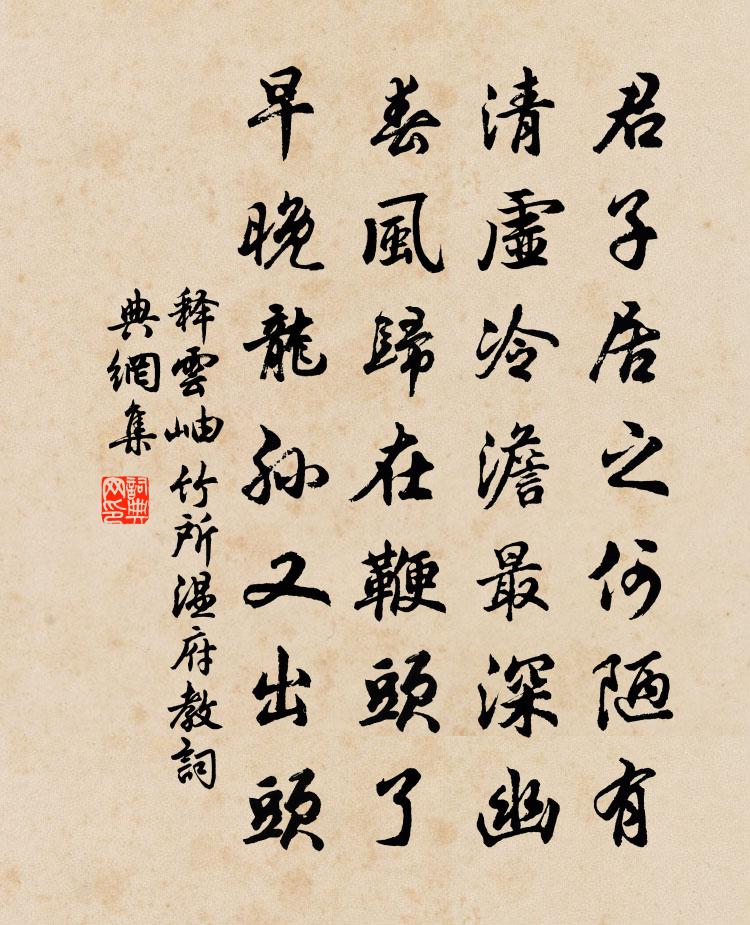 君子居之何陋有
清虛冷澹最深幽
春風歸在鞭頭了
早晚龍孙又出頭
释雲岫竹所温府教詞
典網集
詞典
网印